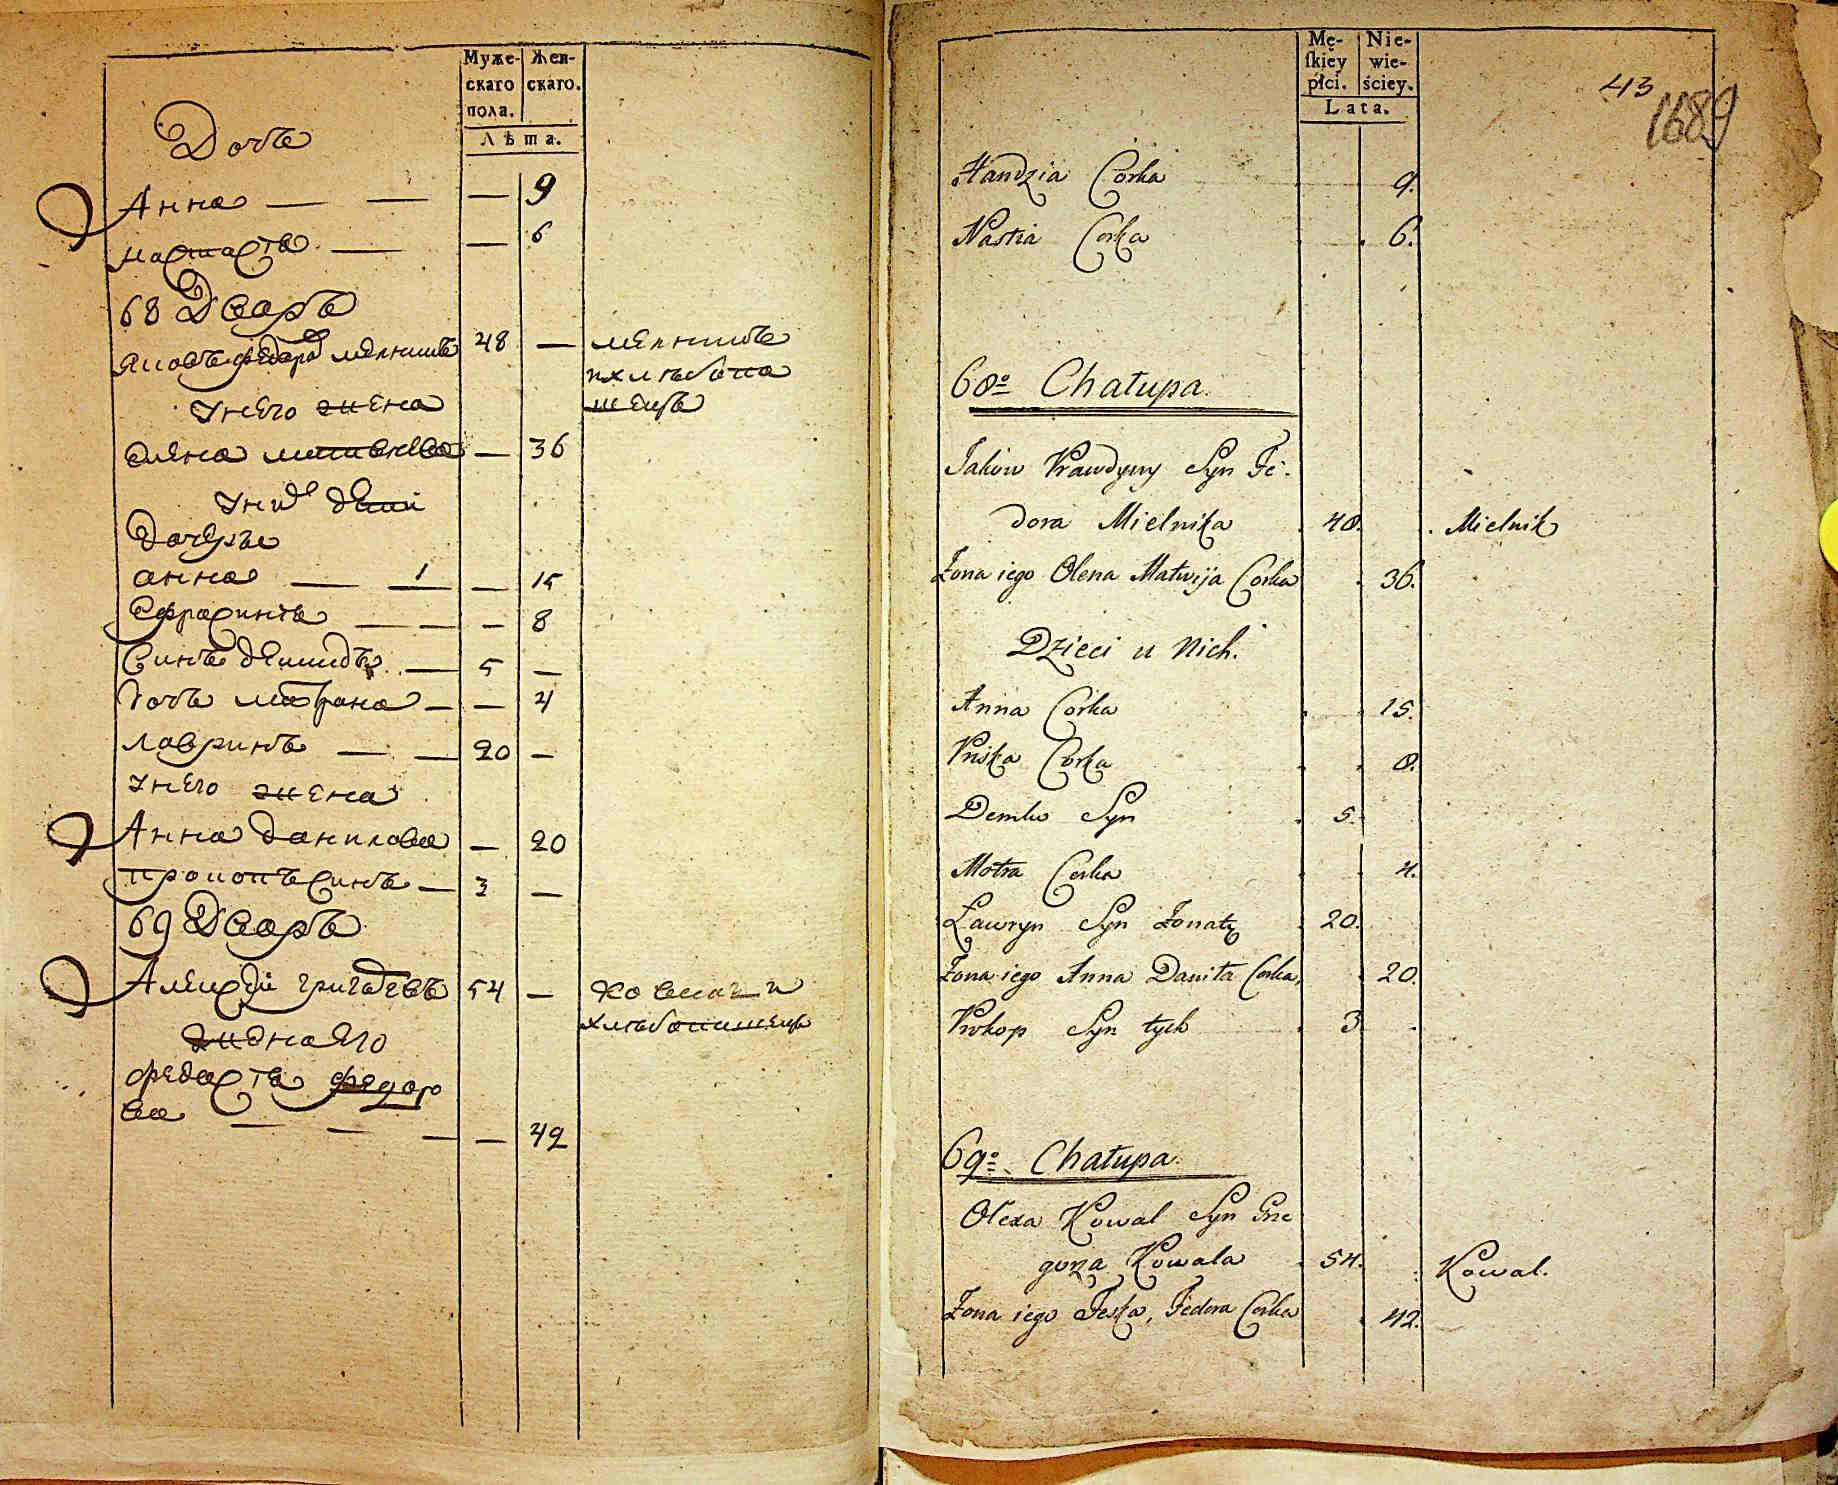 Муже-
скаго
пола.
Жен-
скаго.
Лѣта.
Дочь
Анна — — — 9
настасia — — 6
68 Дворъ
Яковъ федоров мелникъ 48 — мелникъ
и хлѣбопа
шецъ
у него жена
олена матвеева — 36
у них дети
дочери
анна — 1 — 15
Ефросиня — — — 8
Синъ демидъ — 5 —
дочь матрона — — 4
лавринъ — — 20 —
у него жена
Анна данилова — 20
прокопъ Синъ — 3 —
69 Дворъ
Алексѣй григоревъ 54 — ковалъ и
хлѣбопашецъ
жена его
федосiя федоро
ва — — — — 42
Mę-
ſkiey
płci.
Nie-
wie-
ściey.
Lata.
43
1689
Handzia Corka 9.
Nastia Corka 6.
68o Chałupa.
Jakow Prawdywy Syn Fe-
dora Mielnika 48. Mielnik
Żona iego Olena Matwija Corka 36.
Dzieci u Nich.
Anna Corka 15.
Priska Corka 8.
Demko Syn 5.
Motra Corka 4.
Ławryn Syn Żonaty 20.
Żona iego Anna Daniła Corka, 20.
Prokop Syn tych 3.
69o Chałupa.
Olexa Kowal Syn Grze
gorza Kowala 54. Kowal.
Żona iego Feska, Fedora Corka 42.